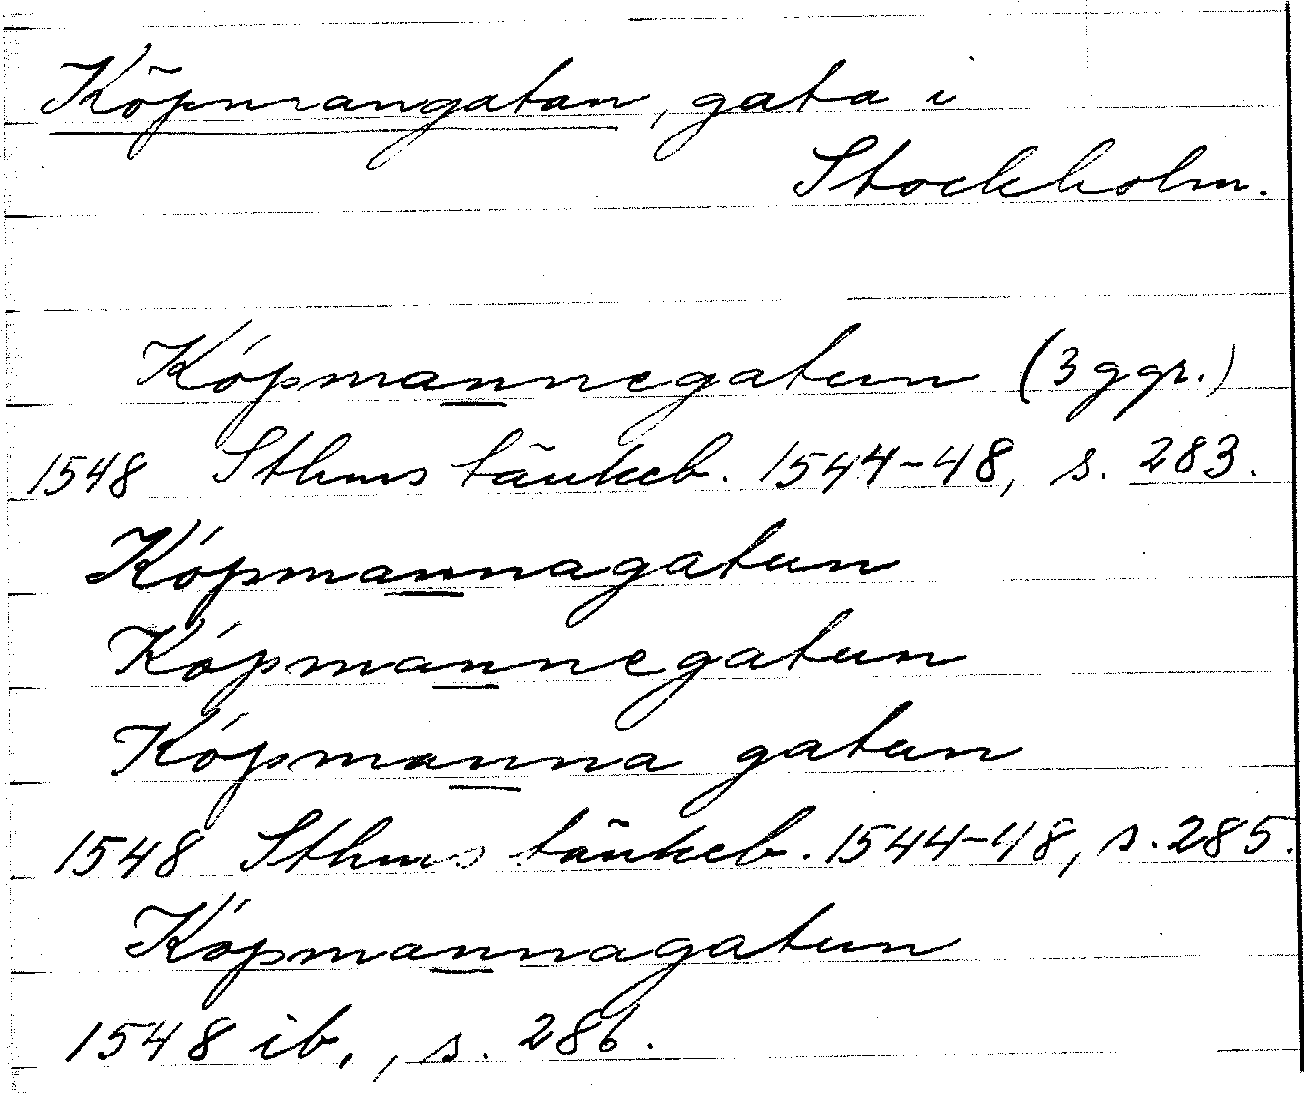 Köpmangatan, gata i
Stockholm.
Kópmannegatun (3 ggr.)
1548 Sthms tänkeb. 1544-48, s. 283.
Kópmannagatun
Kópmannegatun
Kópmanna gatun
1548 Sthms tänkeb. 1544-48, s. 285.
Kópmannagatun
1548 ib., s. 286.